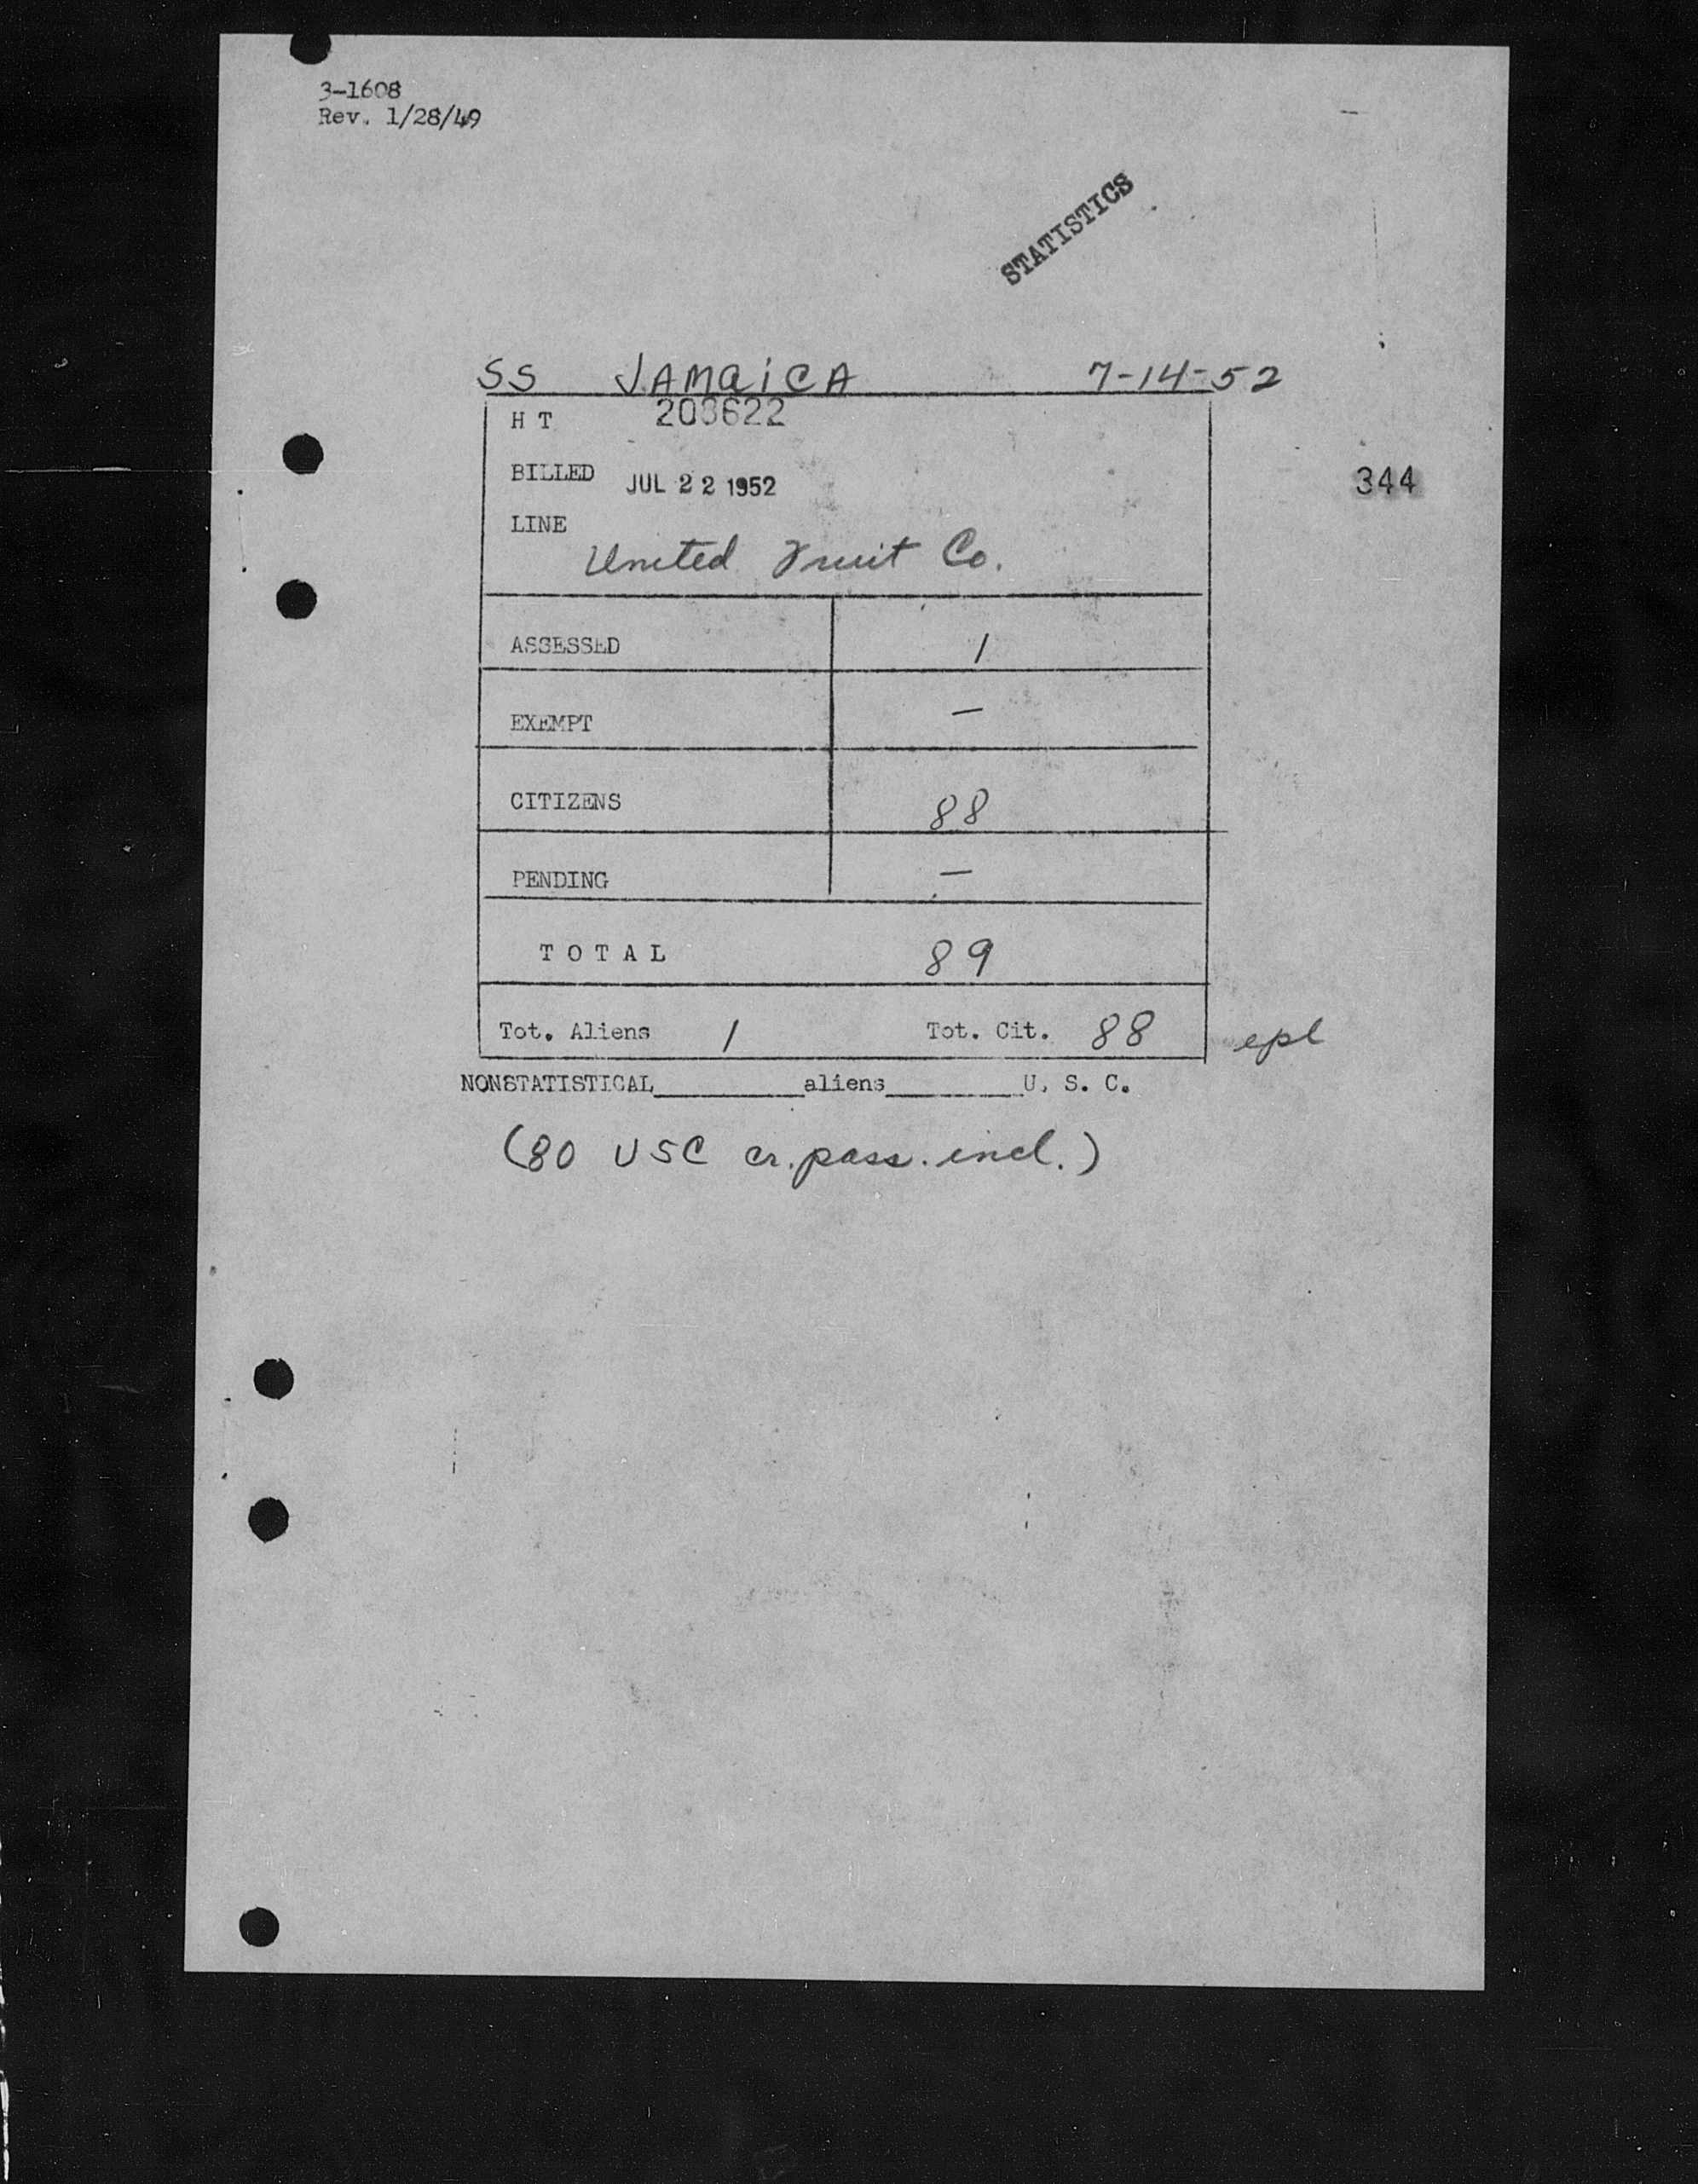 3-1608
Rev. 1/28/49
STATISTICS
SS JAMAICA 7-14-52
H T 203622
BILLED JUL 22 1952
344
LINE
United Fruit Co.
ASSESSED 1
EXEMPT —
CITIZENS 88
PENDING —
T O T A L 89
Tot. Aliens 1 Tot. Cit. 88 epl
NONSTATISTICAL__________aliens__________U. S. C.
(80 USC cr. pass. incl.)